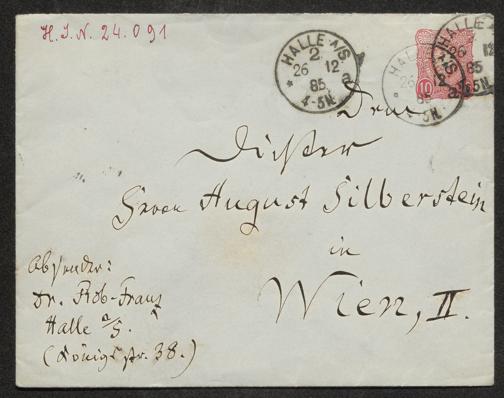 H. I. N. 24.091
HALLE A/S.
2.
26 12
85.
4-5N.
a
HALLE A/S.
26 12
85
4-5N.
HALLE A/S.
26 12
85
10
Dem
Dichter
Herrn August Silberstein
in
Wien, II.
Absender:
Dr. Rob. Franz
Halle a/S.
(Königsstr. 38.)